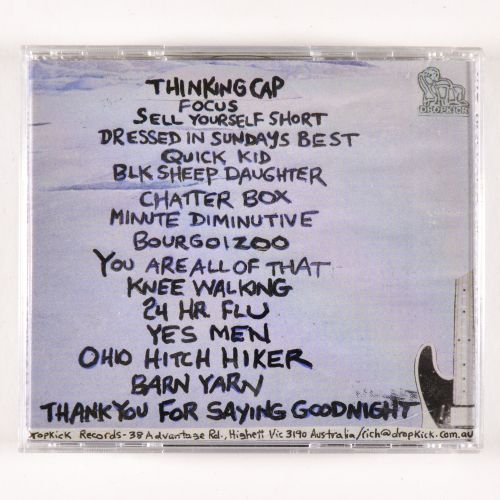 THINKING CAP
FOCUS
SELL YOURSELF SHORT
DRESSED IN SUNDAYS BEST
QUICK KID
BLK SHEEP DAUGHTER
CHATTER BOX
MINUTE DIMINUTIVE
BOURGOIZOO
YOU ARE ALL OF THAT
KNEE WALKING
24 HR. FLU
YES MEN
OHIO HITCH HIKER
BARN YARN
THANK YOU FOR SAYING GOODNIGHT
DROPKICK
DropKicK Records - 38 Advantage Rd., Highett Vic 3190 Australia/rich@dropkick.com.au